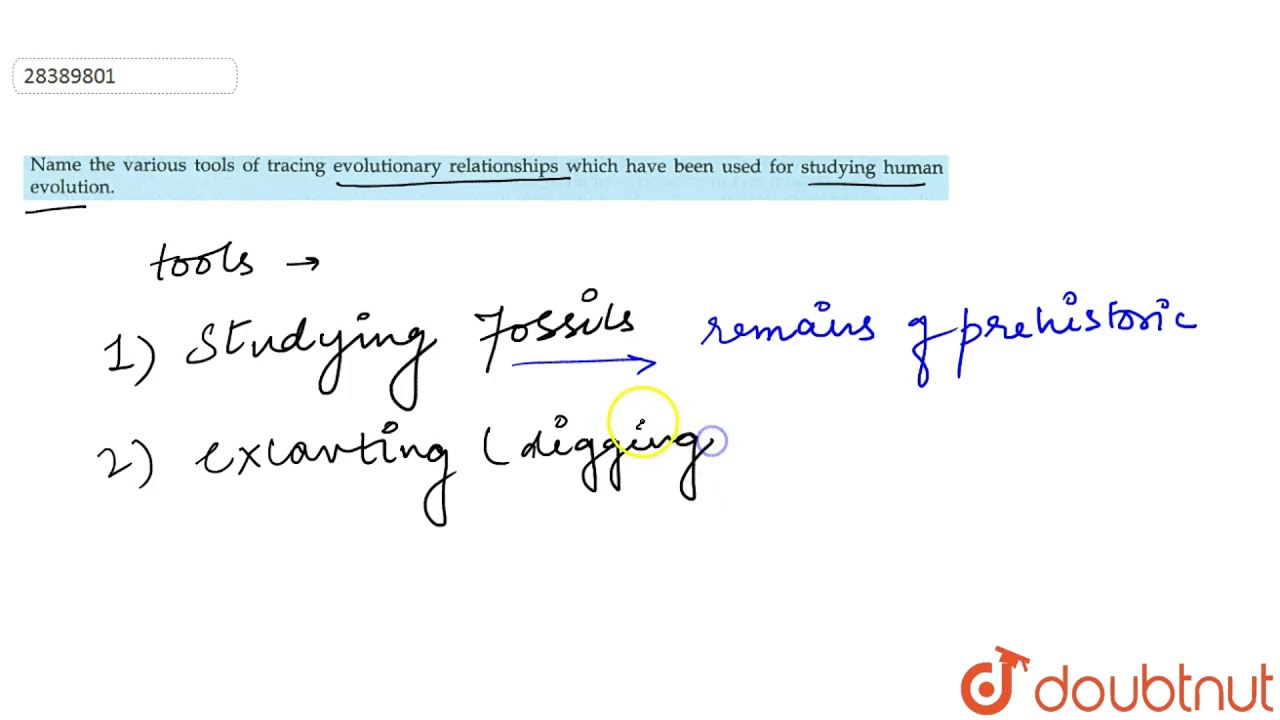 28389801
Name the various tools of tracing evolutionary relationships which have been used for studying human
evolution.
tools →
1) Studying fossils remains of prehistoric
2) excavting (digging
doubtnut